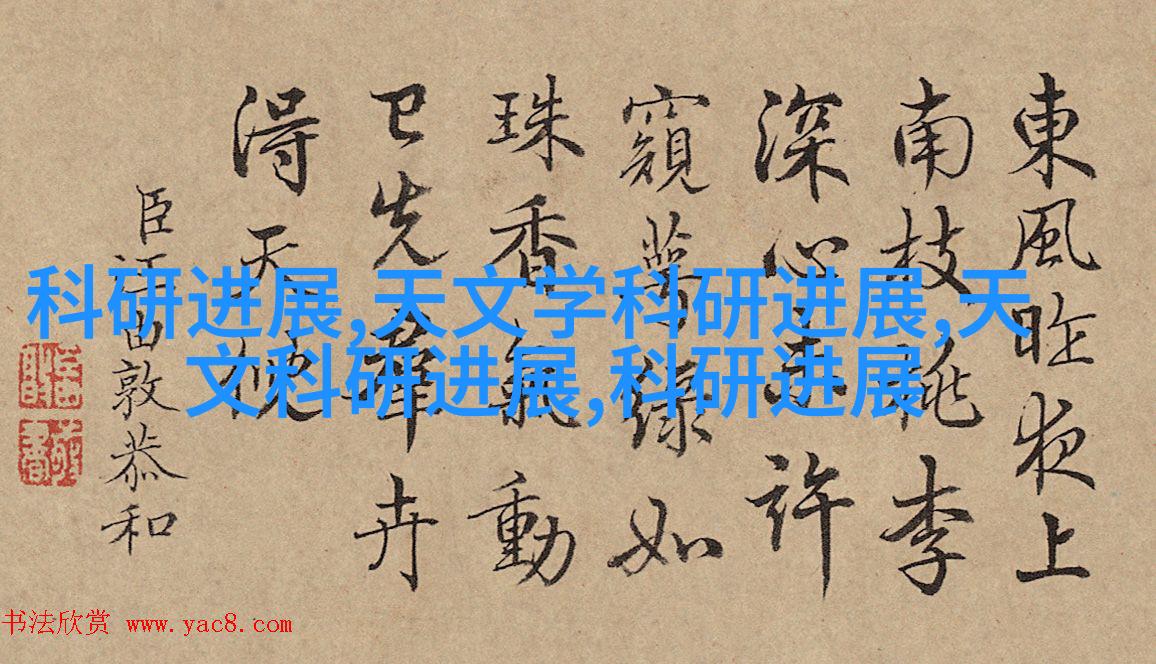 東風昨夜上
南枝桃李
深心未許
窺萼綠如
珠香氣動
已先羣卉
得天
臣汪由敦恭和
科研进展,天文学科研进展,天
文科研进展,科研进展
书法欣赏 www.yac8.com